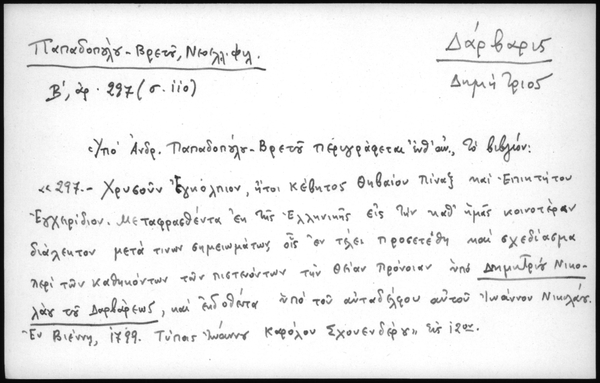 Παπαδοπούλου-Βρετοῦ, Νεοελλ. Φιλ.
Β', ἀρ. 297 (σ. 110)
Δάρβαρις
Δημήτριος
Ὑπὸ Ἀνδρ. Παπαδοπούλου-Βρετοῦ περιγράφεται τὸ βιβλίον:
«297.- Χρυσοῦν Ἐγκόλπιον, ἤτοι Κέβητος Θηβαίου Πίναξ καὶ Ἐπικτήτου
Ἐγχειρίδιον. Μεταφρασθέντα ἐκ τῆς Ἑλληνικῆς εἰς τὴν καθ' ἡμᾶς κοινοτέραν
διάλεκτον μετά τινων σημειωμάτων οἷς ἐν τέλει προσετέθη καὶ σχεδίασμα
περὶ τῶν καθηκόντων τῶν πιστευόντων τὴν θείαν Πρόνοιαν ὑπὸ Δημητρίου Νικο-
λάου τοῦ Δαρβάρεως, καὶ ἐκδοθέντα ὑπὸ τοῦ αὐταδέλφου αὐτοῦ Ἰωάννου Νικολάου.
Ἐν Βιέννῃ, 1799. Τύποις Ἰωάννου Καρόλου Σχουενδέρου» εἰς 12ον.